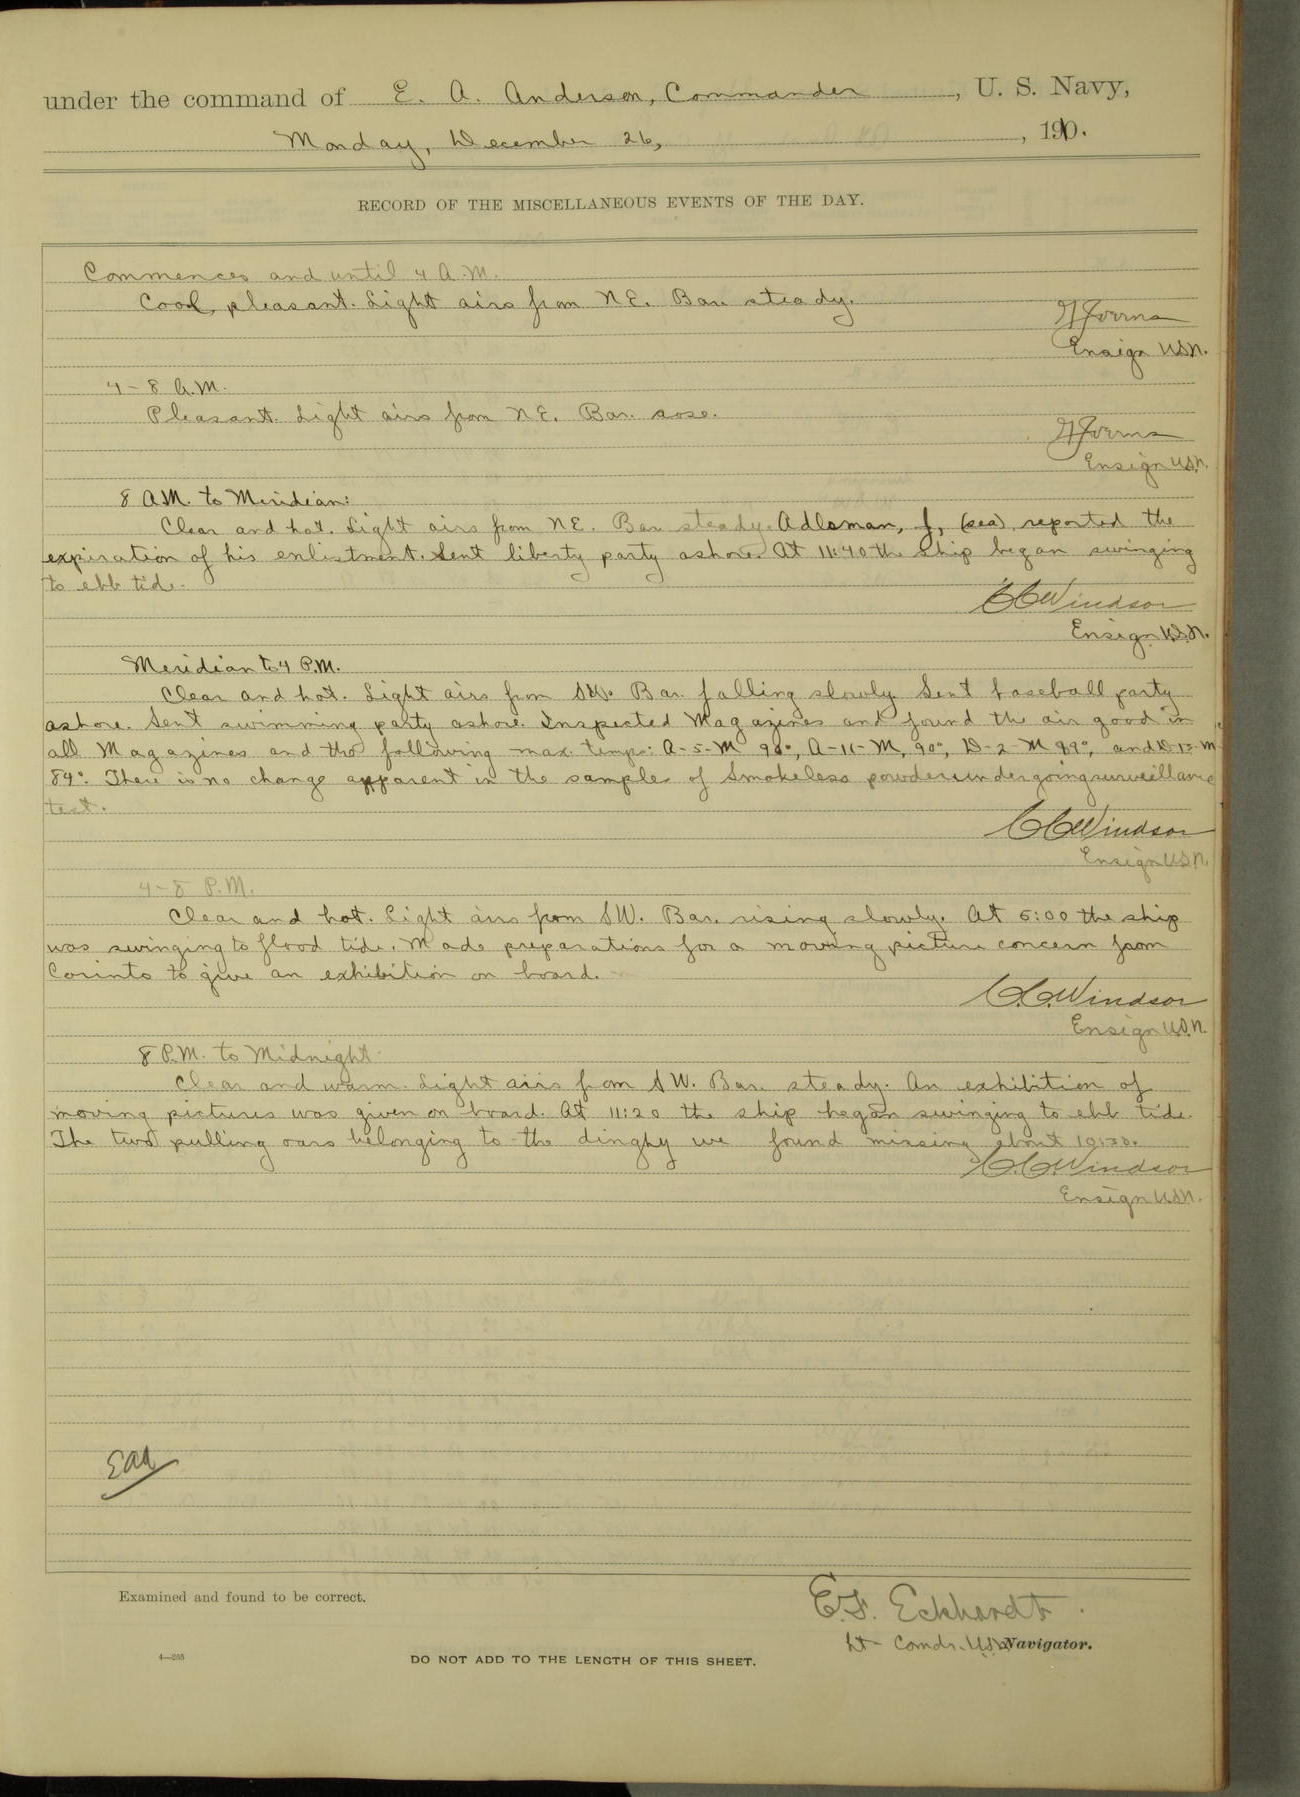 under the command of E. A. Anderson, Commander, U. S. Navy,
Monday, December 26, 1910.
RECORD OF THE MISCELLANEOUS EVENTS OF THE DAY.
Commences and until 4 A.M.
Cool, pleasant. Light airs from NE. Bar. steady.
Ensign USN.
4-8 A.M.
Pleasant. Light airs from NE. Bar. rose.
Ensign USN.
8 AM. to Meridian:
Clear and hot. Light airs from NE. Bar. steady. Adleman, J, (sea), reported the
expiration of his enlistment. Sent liberty party ashore. At 11:40 the ship began swinging
to ebb tide.
CCWindsor
Ensign U.S.N.
Meridian to 4 P.M.
Clear and hot. Light airs from SW. Bar. falling slowly. Sent baseball party
ashore. Sent swimming party ashore. Inspected Magazines and found the air good in
all Magazines and the following max. temps: A-5-M 90°, A-11-M, 90°, D-2-M 89°, and D-13-M
89°. There is no change apparent in the samples of Smokeless powder undergoing surveillance
test.
CCWindsor
Ensign USN.
4-8 P.M.
Clear and hot. Light airs from SW. Bar. rising slowly. At 5:00 the ship
was swinging to flood tide. Made preparations for a moving picture concern from
Corinto to give an exhibition on board.
C.C.Windsor
Ensign U.S.N.
8 P.M. to Midnight.
Clear and warm. Light airs from SW. Bar. steady. An exhibition of
moving pictures was given on board. At 11:20 the ship began swinging to ebb tide.
The two pulling oars belonging to the dinghy we found missing about 10:30.
C.C.Windsor
Ensign USN.
EAA
Examined and found to be correct.
E.F. Eckhardt.
Lt- Comdr. U.S.N. Navigator.
4—265
DO NOT ADD TO THE LENGTH OF THIS SHEET.